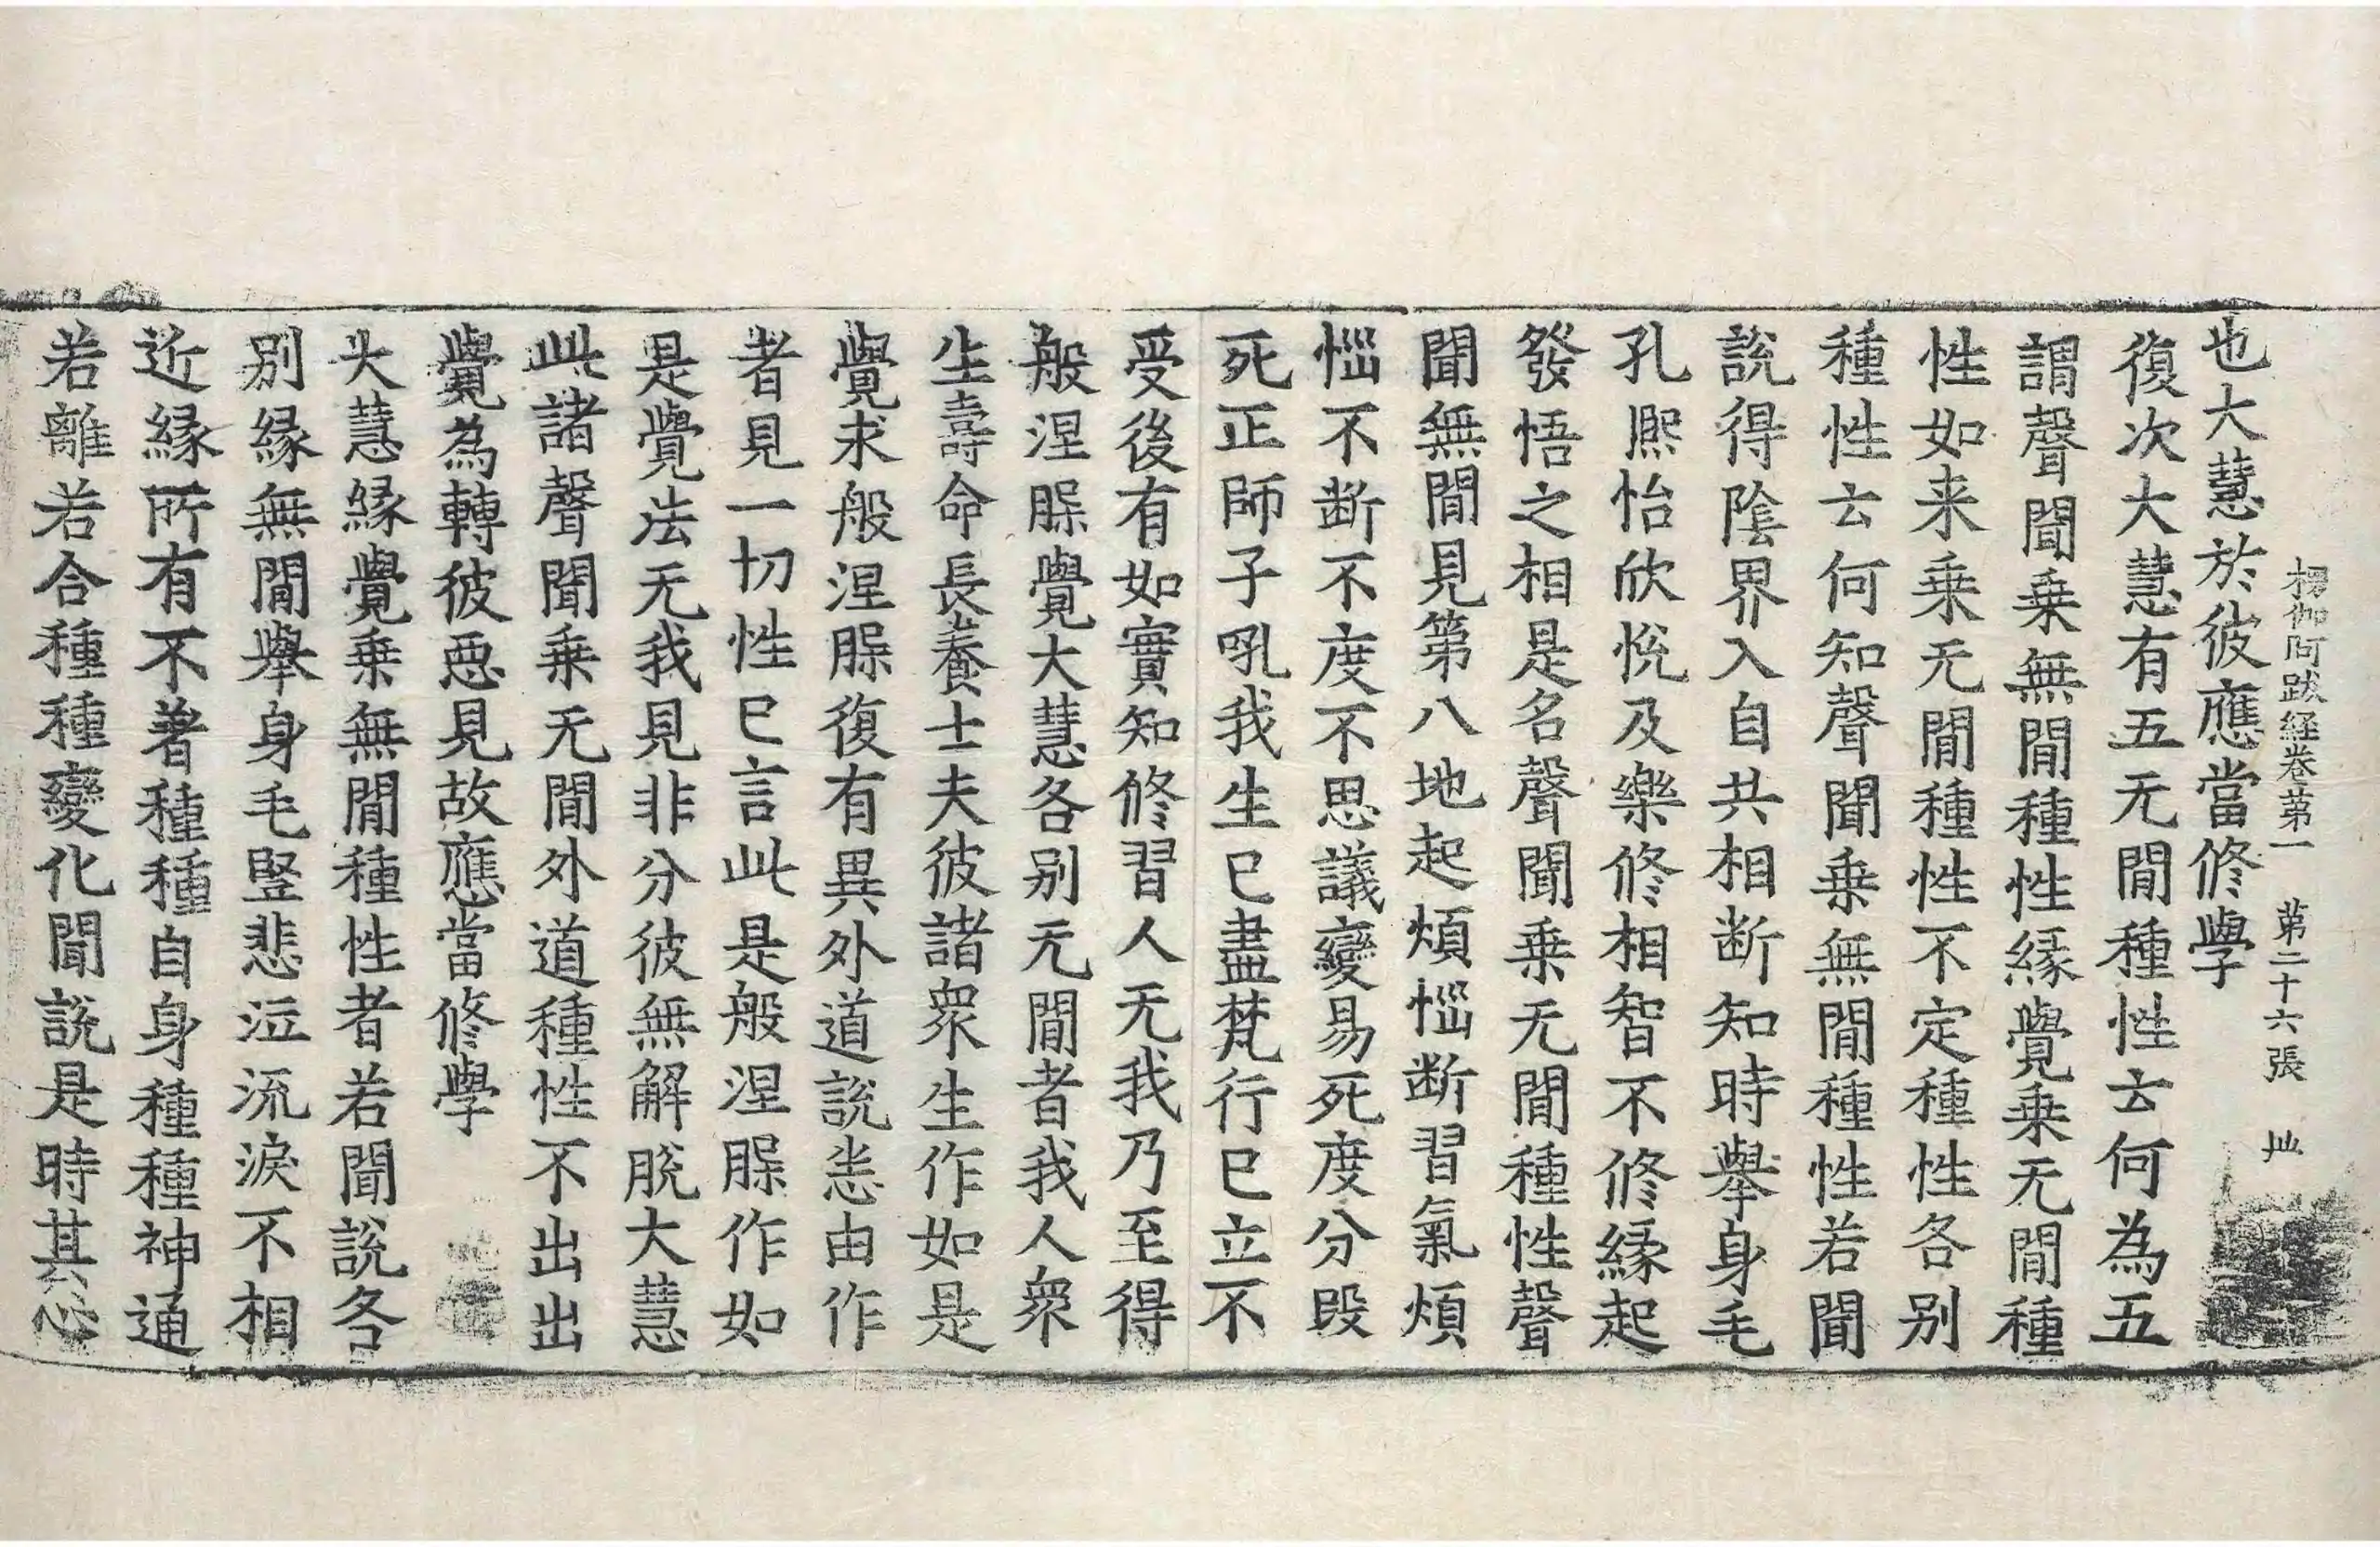 楞伽阿跋経卷苐一 苐二十六張 𡉄
也大慧於彼應當修學
復次大慧有五无閒種性云何為五
謂聲聞乗無閒種性縁覺乗无閒種
性如来乗无閒種性不定種性各别
種性云何知聲聞乗無閒種性若聞
說得隂界入自共相断知時舉身毛
孔熈怡欣恱及樂修相智不修縁起
發悟之相是名聲聞乗无閒種性聲
聞無閒見第八地起煩惱断習氣煩
惱不断不度不思議變易死度分段
死正師子吼我生已盡梵行已立不
受後有如實知修習人无我乃至得
般涅槃覺大慧各别无閒者我人衆
生壽命長養士夫彼諸衆生作如是
覺求般涅槃復有異外道說悉由作
者見一切性已言此是般涅槃作如
是覺法无我見非分彼無解脫大慧
此諸聲聞乗无閒外道種性不出出
覺為轉彼惡見故應當修學
大慧縁覺乗無閒種性者若聞說各
别縁無閒舉身毛竪悲泣流淚不相
近縁所有不著種種自身種種神通
若離若合種種變化聞說是時其心